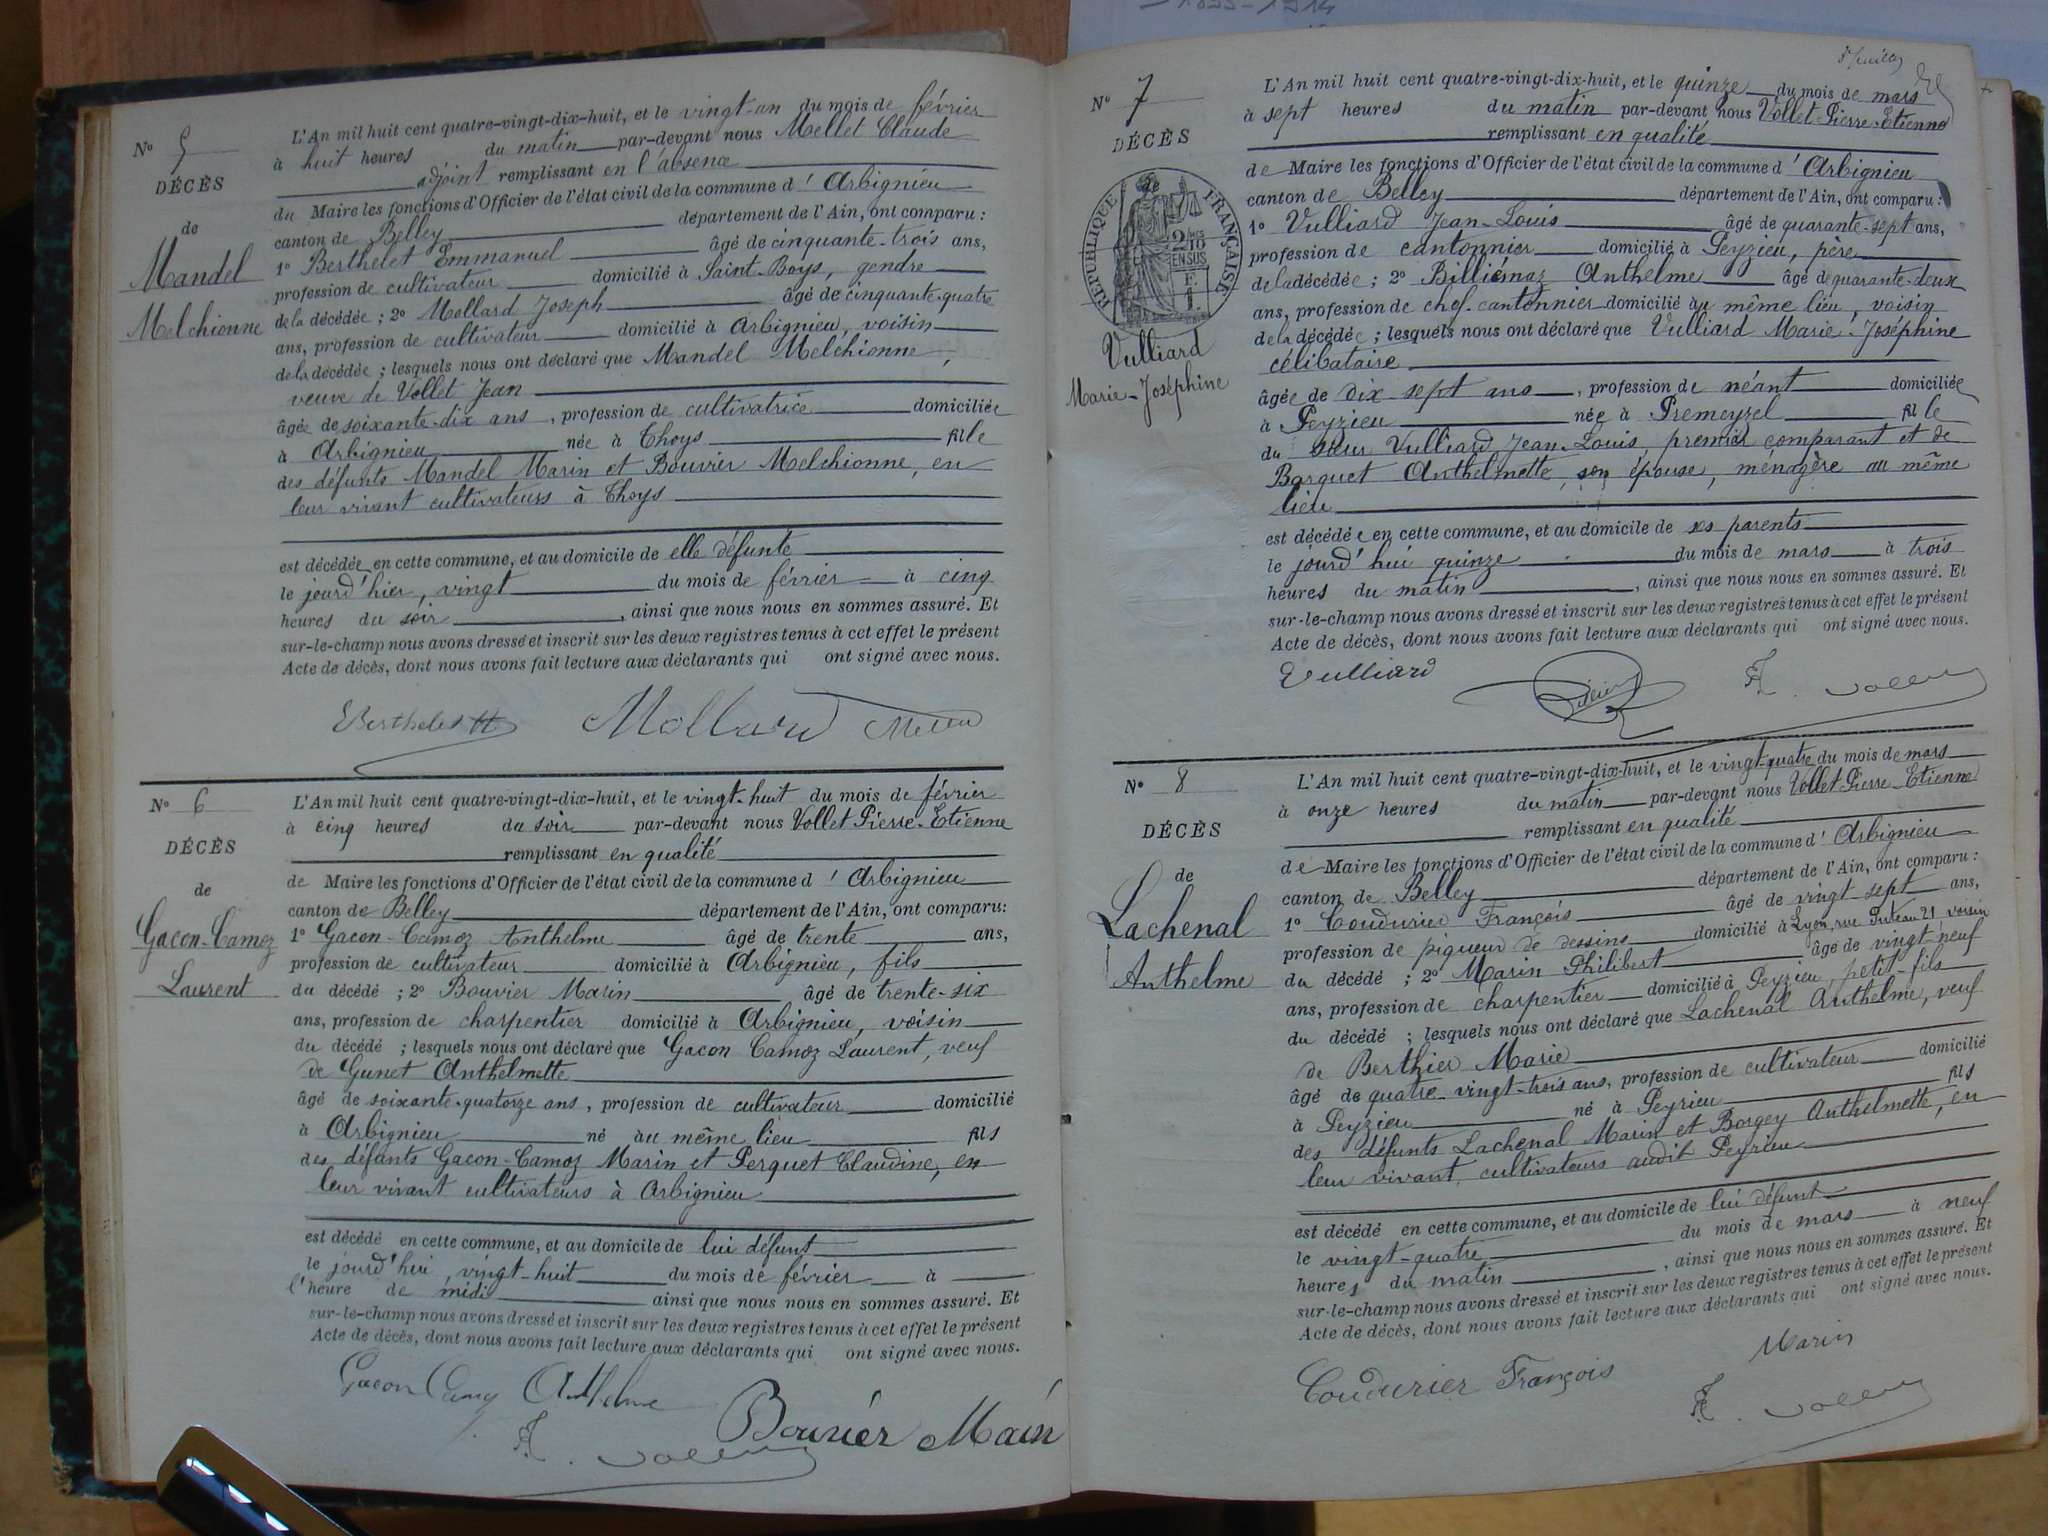 N° 5
DÉCÈS
de
Mandel
Melchionne
L'An mil huit cent quatre-vingt-dix-huit, et le vingt-un du mois de février
à huit heures du matin par-devant nous Mellet Claude
adjoint remplissant en l'absence
du Maire les fonctions d'Officier de l'état civil de la commune d'Arbignieu
canton de Belley département de l'Ain, ont comparu :
1° Berthelet Emmanuel âgé de cinquante-trois ans,
profession de cultivateur domicilié à Saint-Boys, gendre
de la décédée ; 2° Mollard Joseph âgé de cinquante-quatre
ans, profession de cultivateur domicilié à Arbignieu, voisin
de la décédée ; lesquels nous ont déclaré que Mandel Melchionne,
veuve de Vollet Jean
âgée de soixante-dix ans, profession de cultivatrice domiciliée
à Arbignieu née à Thoys fille
des défunts Mandel Marin et Bouvier Melchionne, en
leur vivant cultivateurs à Thoys
est décédée en cette commune, et au domicile de elle défunte
le jourd'hier, vingt du mois de février à cinq
heures du soir, ainsi que nous nous en sommes assuré. Et
sur-le-champ nous avons dressé et inscrit sur les deux registres tenus à cet effet le présent
Acte de décès, dont nous avons fait lecture aux déclarants qui ont signé avec nous.
Berthelet Mollard Mellet
N° 6
DÉCÈS
de
Gacon-Camoz
Laurent
L'An mil huit cent quatre-vingt-dix-huit, et le vingt-huit du mois de février
à cinq heures du soir par-devant nous Vollet Pierre-Etienne
remplissant en qualité
de Maire les fonctions d'Officier de l'état civil de la commune d'Arbignieu
canton de Belley département de l'Ain, ont comparu :
1° Gacon-Camoz Anthelme âgé de trente ans,
profession de cultivateur domicilié à Arbignieu, fils
du décédé ; 2° Bouvier Marin âgé de trente-six
ans, profession de charpentier domicilié à Arbignieu, voisin
du décédé ; lesquels nous ont déclaré que Gacon Camoz Laurent, veuf
de Gunet Anthelmette
âgé de soixante-quatorze ans, profession de cultivateur domicilié
à Arbignieu né au même lieu fils
des défunts Gacon-Camoz Marin et Perquet Claudine, en
leur vivant cultivateurs à Arbignieu
est décédé en cette commune, et au domicile de lui défunt
le jourd'hui, vingt-huit du mois de février à
l'heure de midi ainsi que nous nous en sommes assuré. Et
sur-le-champ nous avons dressé et inscrit sur les deux registres tenus à cet effet le présent
Acte de décès, dont nous avons fait lecture aux déclarants qui ont signé avec nous.
Gacon Camoz Anthelme
Bouvier Marin
Vollet
N° 7
DÉCÈS
de
RÉPUBLIQUE FRANÇAISE
2/10 EN SUS
Vulliard
Marie-Joséphine
L'An mil huit cent quatre-vingt-dix-huit, et le quinze du mois de mars
à sept heures du matin par-devant nous Vollet Pierre-Etienne
remplissant en qualité
de Maire les fonctions d'Officier de l'état civil de la commune d'Arbignieu
canton de Belley département de l'Ain, ont comparu :
1° Vulliard Jean-Louis âgé de quarante-sept ans,
profession de cantonnier domicilié à Peyzieu, père
de la décédée ; 2° Billiémaz Anthelme âgé de quarante-deux
ans, profession de chef-cantonnier domicilié au même lieu, voisin
de la décédée ; lesquels nous ont déclaré que Vulliard Marie-Joséphine
célibataire
âgée de dix sept ans, profession de néant domiciliée
à Peyzieu née à Premeyzel fille
du sieur Vulliard Jean-Louis, premier comparant et de
Barquet Anthelmette, son épouse, ménagère au même
lieu
est décédée en cette commune, et au domicile de ses parents
le jourd'hui quinze du mois de mars à trois
heures du matin, ainsi que nous nous en sommes assuré. Et
sur-le-champ nous avons dressé et inscrit sur les deux registres tenus à cet effet le présent
Acte de décès, dont nous avons fait lecture aux déclarants qui ont signé avec nous.
Vulliard Vollet
N° 8
DÉCÈS
de
Lachenal
Anthelme
L'An mil huit cent quatre-vingt-dix-huit, et le vingt-quatre du mois de mars
à onze heures du matin par-devant nous Vollet Pierre-Etienne
remplissant en qualité
de Maire les fonctions d'Officier de l'état civil de la commune d'Arbignieu
canton de Belley département de l'Ain, ont comparu :
1° Coudurier François âgé de vingt-sept ans,
profession de piqueur de dessins domicilié à Lyon, rue Puteau 21, voisin
du décédé ; 2° Marin Philibert âgé de vingt-neuf
ans, profession de charpentier domicilié à Peyzieu, petit-fils
du décédé ; lesquels nous ont déclaré que Lachenal Anthelme, veuf
de Berthier Marie
âgé de quatre-vingt-trois ans, profession de cultivateur domicilié
à Peyzieu né à Peyrieu fils
des défunts Lachenal Marin et Borgey Anthelmette, en
leur vivant, cultivateurs audit Peyrieu
est décédé en cette commune, et au domicile de lui défunt
le vingt-quatre du mois de mars à neuf
heures du matin, ainsi que nous nous en sommes assuré. Et
sur-le-champ nous avons dressé et inscrit sur les deux registres tenus à cet effet le présent
Acte de décès, dont nous avons fait lecture aux déclarants qui ont signé avec nous.
Marin
Coudurier François
Vollet